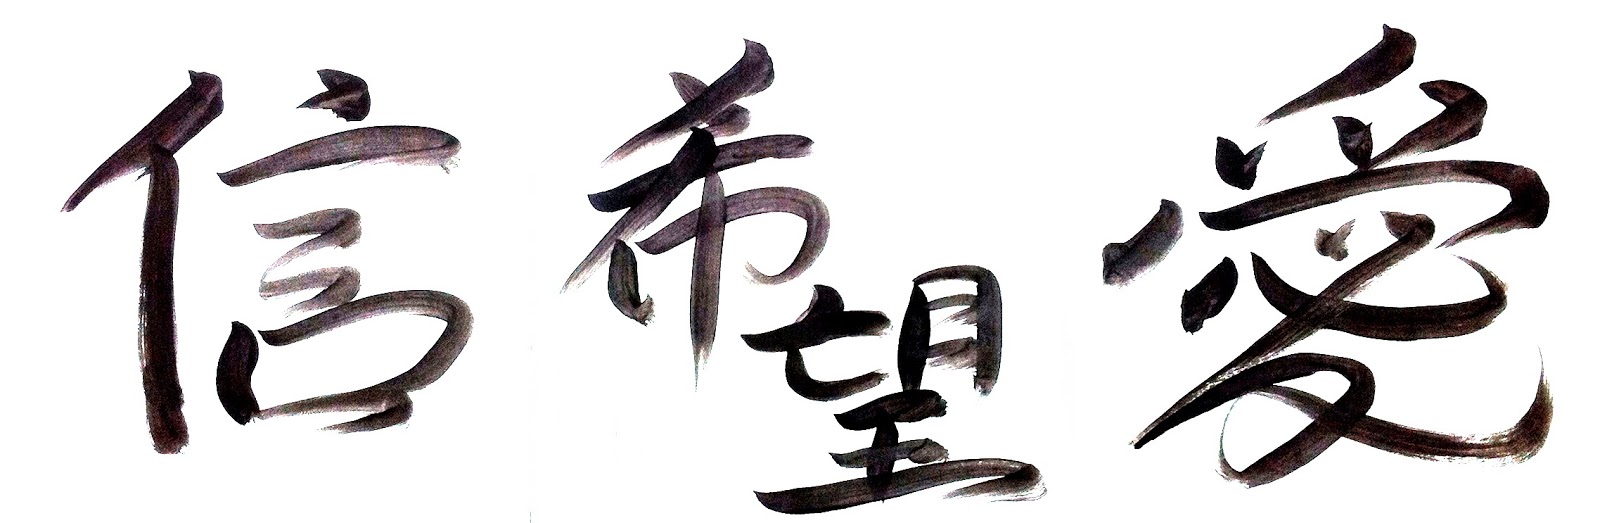 信 希望 愛